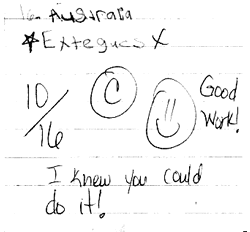 16. Australia
*Extegues X
10/16
C
Good
Work!
I knew you could
do it!